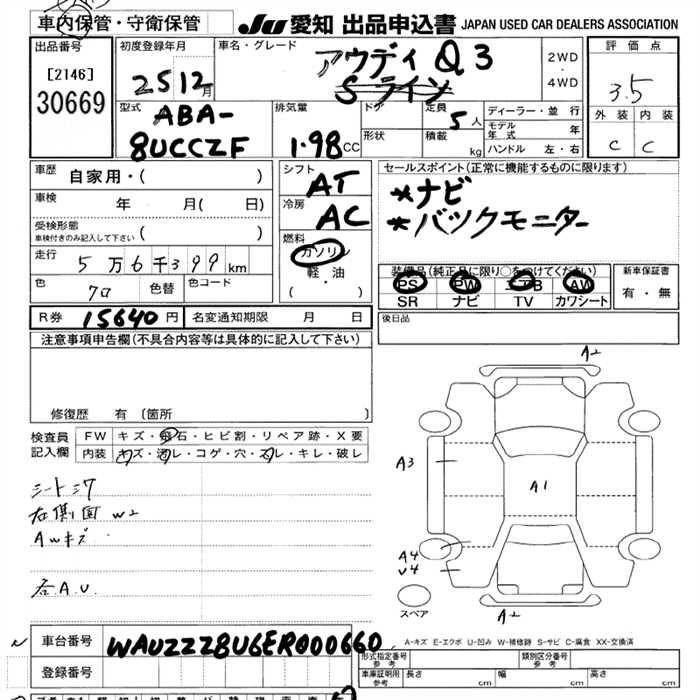 車内保管・守衛保管
JU 愛知 出品申込書 JAPAN USED CAR DEALERS ASSOCIATION
出品番号
[2146]
30669
初度登録年月
25 12月
車名・グレード
アウディ Q3
Sライン
2WD
・
4WD
評価点
3.5
外装 内装
C C
型式
ABA-
8UCCZF
排気量
1.98 CC
ドア
形状
定員
5人
積載
kg
ディーラー・並行
モデル年式 年
ハンドル 左・右
車歴
自家用・( )
車検
年 月( 日)
受検形態
車検付きのみ記入して下さい ( )
走行
5万6千399km
色
クロ
色替
色コード
シフト
AT
冷房
AC
燃料
ガソリン
軽・油
( ・ )
セールスポイント(正常に機能するものに限ります)
*ナビ
*バックモニター
装備品(純正品に限り○をつけてください)
PS PW エアB AW
SR ナビ TV カワシート
新車保証書
有・無
R券 15640円 名変通知期限 月 日
後日品
注意事項申告欄(不具合内容等は具体的に記入して下さい)
修復歴 有 〔箇所 〕
検査員
記入欄
FW キズ・飛石・ヒビ割・リペア跡・X要
内装 キズ・汚レ・コゲ・穴・スレ・キレ・破レ
シートシワ
右側面 W2
AWキズ
各A.U.
A2
A3
A1
A4
U4
A2
スペア
A-キズ E-エクボ U-凹み W-補修跡 S-サビ C-腐食 XX-交換済
車台番号 WAUZZZ8U6ER000660
登録番号
形式指定番号
参考
類別区分番号
参考
車庫証明用
参考
長さ cm 幅 cm 高さ cm